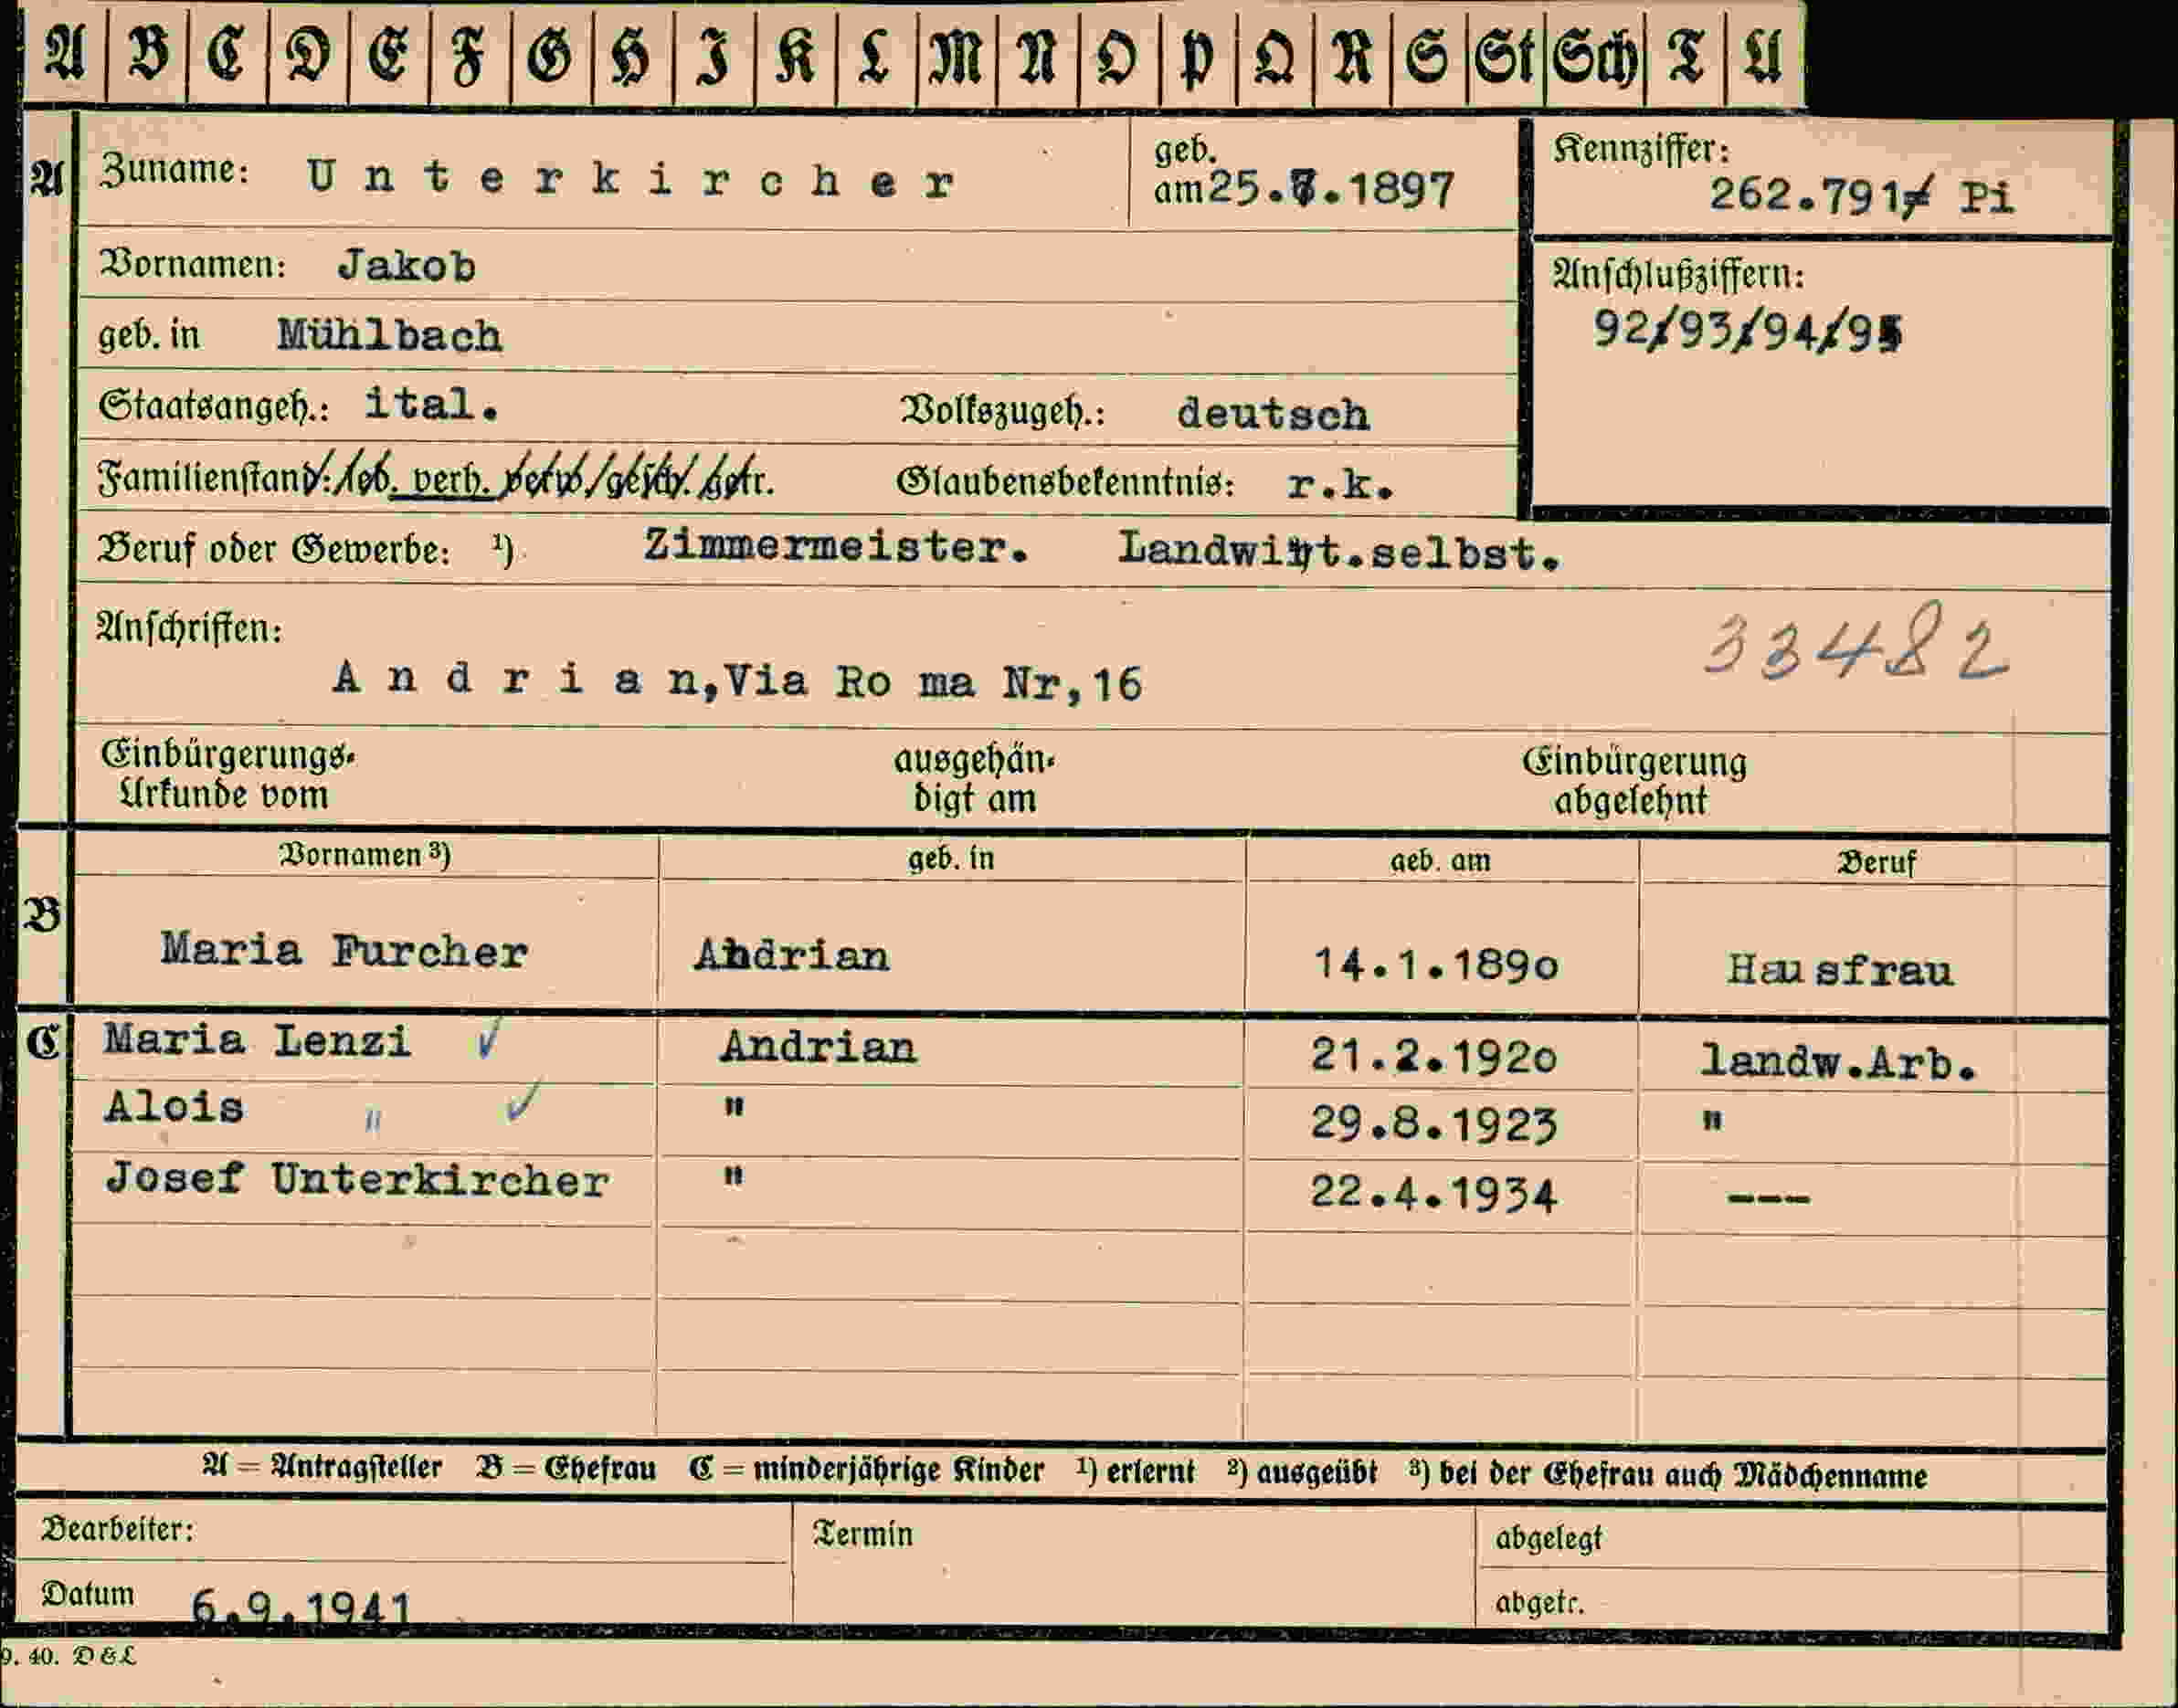 A B C D E F G H I K L M N O P Q R S St Sch T U
A Zuname: Unterkircher geb. am 25.7.1897 Kennziffer: 262.791/ Pi
Vornamen: Jakob Anschlußziffern:
geb. in Mühlbach 92/93/94/95
Staatsangeh.: ital. Volkszugeh.: deutsch
Familienstand: led. verh. verw. gesch. getr. Glaubensbekenntnis: r.k.
Beruf oder Gewerbe: ¹) Zimmermeister. Landwirt.selbst.
Anschriften: 33482
Andrian,Via Ro ma Nr,16
Einbürgerungs- ausgehän- Einbürgerung
Urkunde vom digt am abgelehnt
B Vornamen ³) geb. in geb. am Beruf
Maria Furcher Andrian 14.1.1890 Hausfrau
C Maria Lenzi ✓ Andrian 21.2.1920 landw.Arb.
Alois " ✓ " 29.8.1923 "
Josef Unterkircher " 22.4.1934 ---
A = Antragsteller B = Ehefrau C = minderjährige Kinder ¹) erlernt ²) ausgeübt ³) bei der Ehefrau auch Mädchenname
Bearbeiter: Termin abgelegt
Datum 6.9.1941 abgetr.
9. 40. D & L